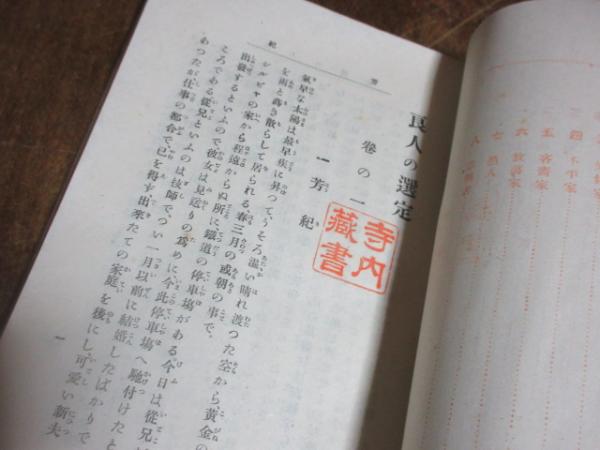 良人の選定
卷の一
一 芳紀
氣早な太陽は最早疾に昇つて、うそろ溫い晴れ渡つた空から黃金の
を雨と蒔き散らして居られる春三月の或朝の事で、
シルビヤの家から程遠からぬ所に、鐵道の停車場がある今日は從兄が
出發するといふので彼女は見送りの爲めに今此停車場へ馳付けたと
ころである從兄といふのは技師で、つい一月以前に結婚したばかりで
あつたが仕事の都合で、已を得ず出來たての家庭を後にし可愛い新夫
一
寺内
藏書
芳
紀
五 客嗇家
六
七
八